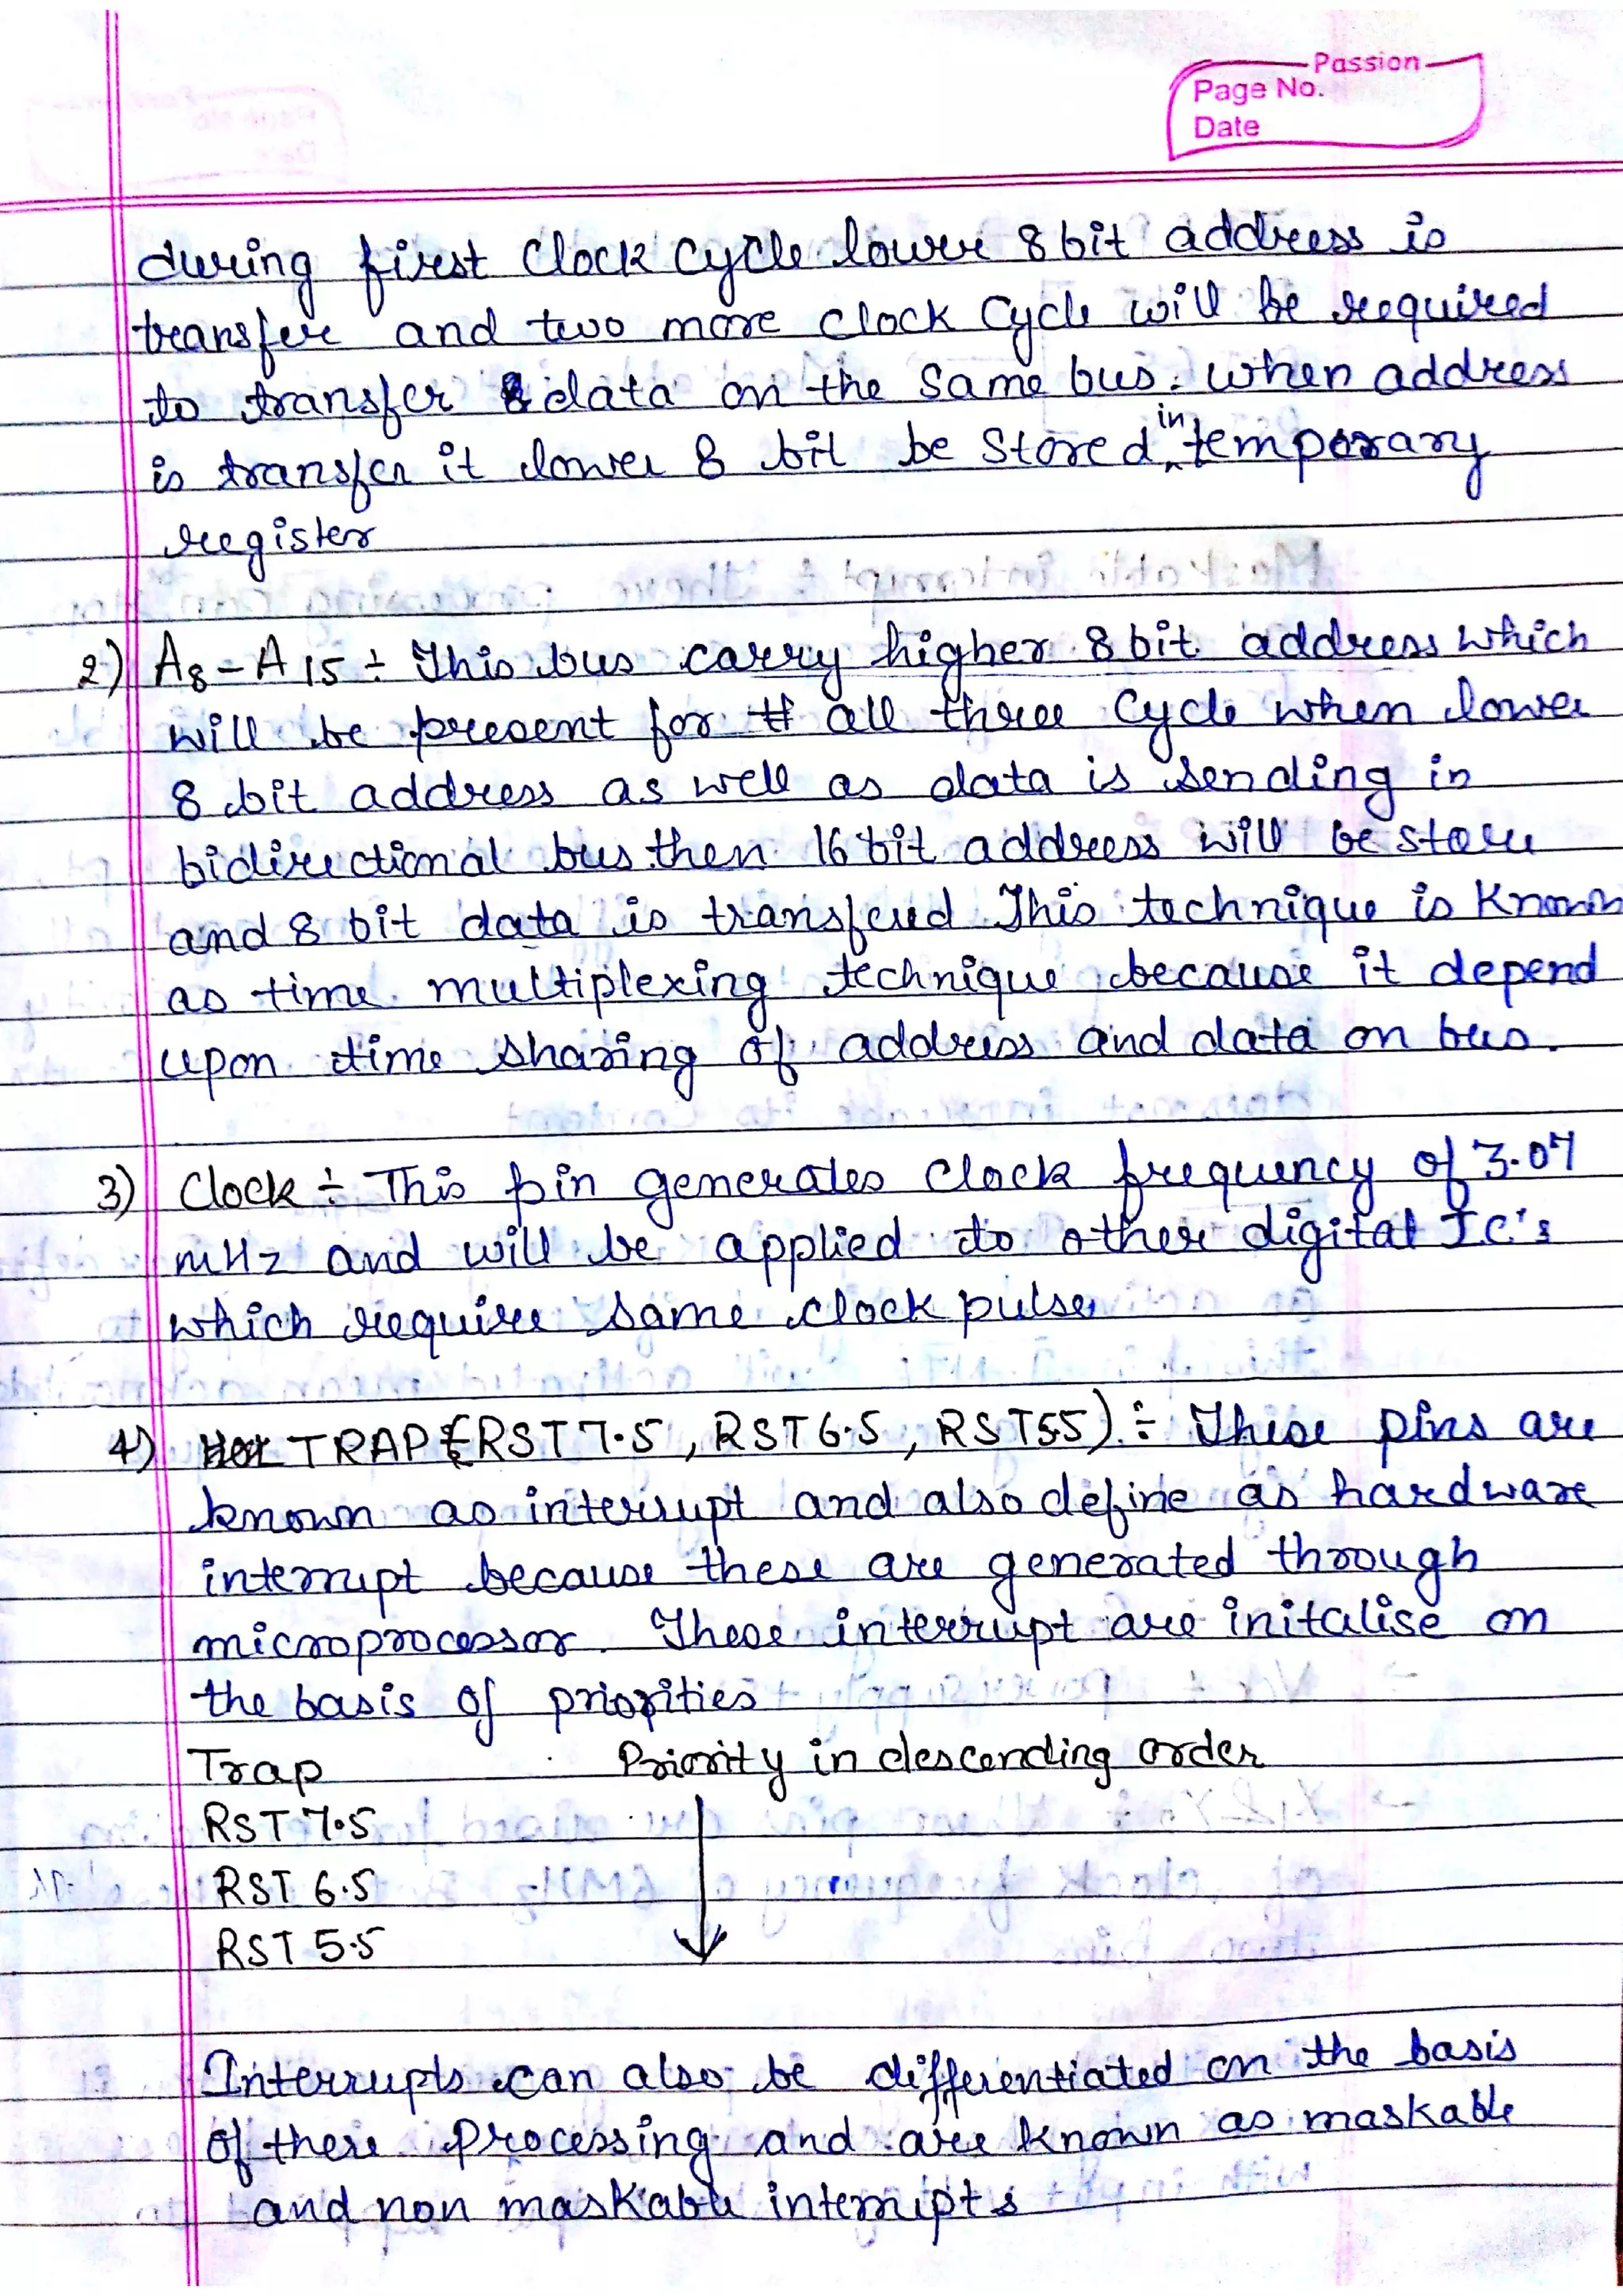 Passion
Page No.
Date
during first clock cycle lower 8 bit address is
transfer and two more clock cycle will be required
to transfer data on the same bus. when address
is transfer it lower 8 bit be stored in temporary
register
2) A8 - A15 ÷ This bus carry higher 8 bit address which
will be present for all three cycle when lower
8 bit address as well as data is sending in
bidirectional bus then 16 bit address will be store
and 8 bit data is transferd This technique is known
as time multiplexing technique because it depend
upon time sharing of address and data on bus.
3) Clock ÷ This pin generates clock frequency of 3.07
mHz and will be applied to other digital I.C's
which require same clock pulse
4) TRAP (RST 7.5, RST 6.5, RST 5.5) ÷ These pins are
known as interrupt and also define as hardware
interrupt because these are generated through
microprocessor. These interrupt are initalise on
the basis of priorities
Trap Priority in descending order
RST 7.5
RST 6.5
RST 5.5
Interrupts can also be differentiated on the basis
of there processing and are known as maskable
and non maskable interrupts